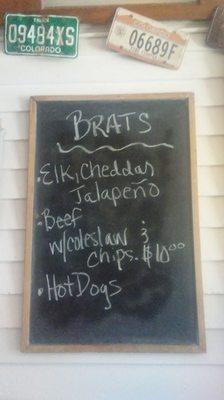 TRUCK
09484XS
COLORADO
06689F
BRATS
• Elk, Cheddar
Jalapeño
• Beef
w/coleslaw &
chips. $10.00
• Hot Dogs